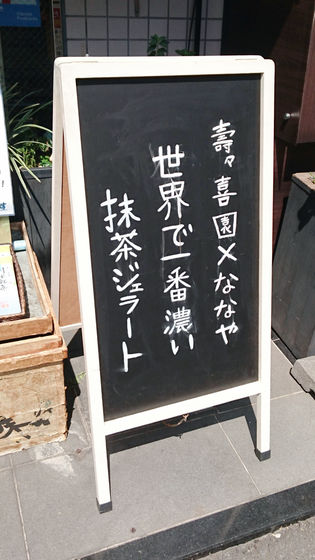 壽々喜園×ななや
世界で一番濃い
抹茶ジェラート